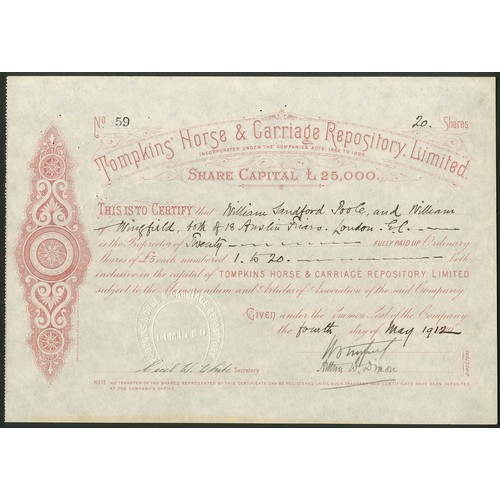 No 59 20. Shares
Tompkins' Horse & Carriage Repository, Limited.
INCORPORATED UNDER THE COMPANIES ACTS, 1862 TO 1890.
SHARE CAPITAL £25,000.
THIS IS TO CERTIFY that William Sandford Poole, and William
Wingfield, both of 13 Austin Friars. London. E.C.
is the Proprietor of Twenty FULLY PAID UP Ordinary
Shares of £5 each numbered 1. to 20. both
inclusive in the capital of TOMPKINS HORSE & CARRIAGE REPOSITORY, LIMITED
subject to the Memorandum and Articles of Association of the said Company.
Given under the Common Seal of the Company
the fourth day of May 1912
LIMITED
Secretary
DIRECTORS
NOTE. NO TRANSFER OF THE SHARES REPRESENTED BY THIS CERTIFICATE CAN BE REGISTERED UNTIL SUCH TRANSFER AND CERTIFICATE HAVE BEEN DEPOSITED
AT THE COMPANY'S OFFICE.